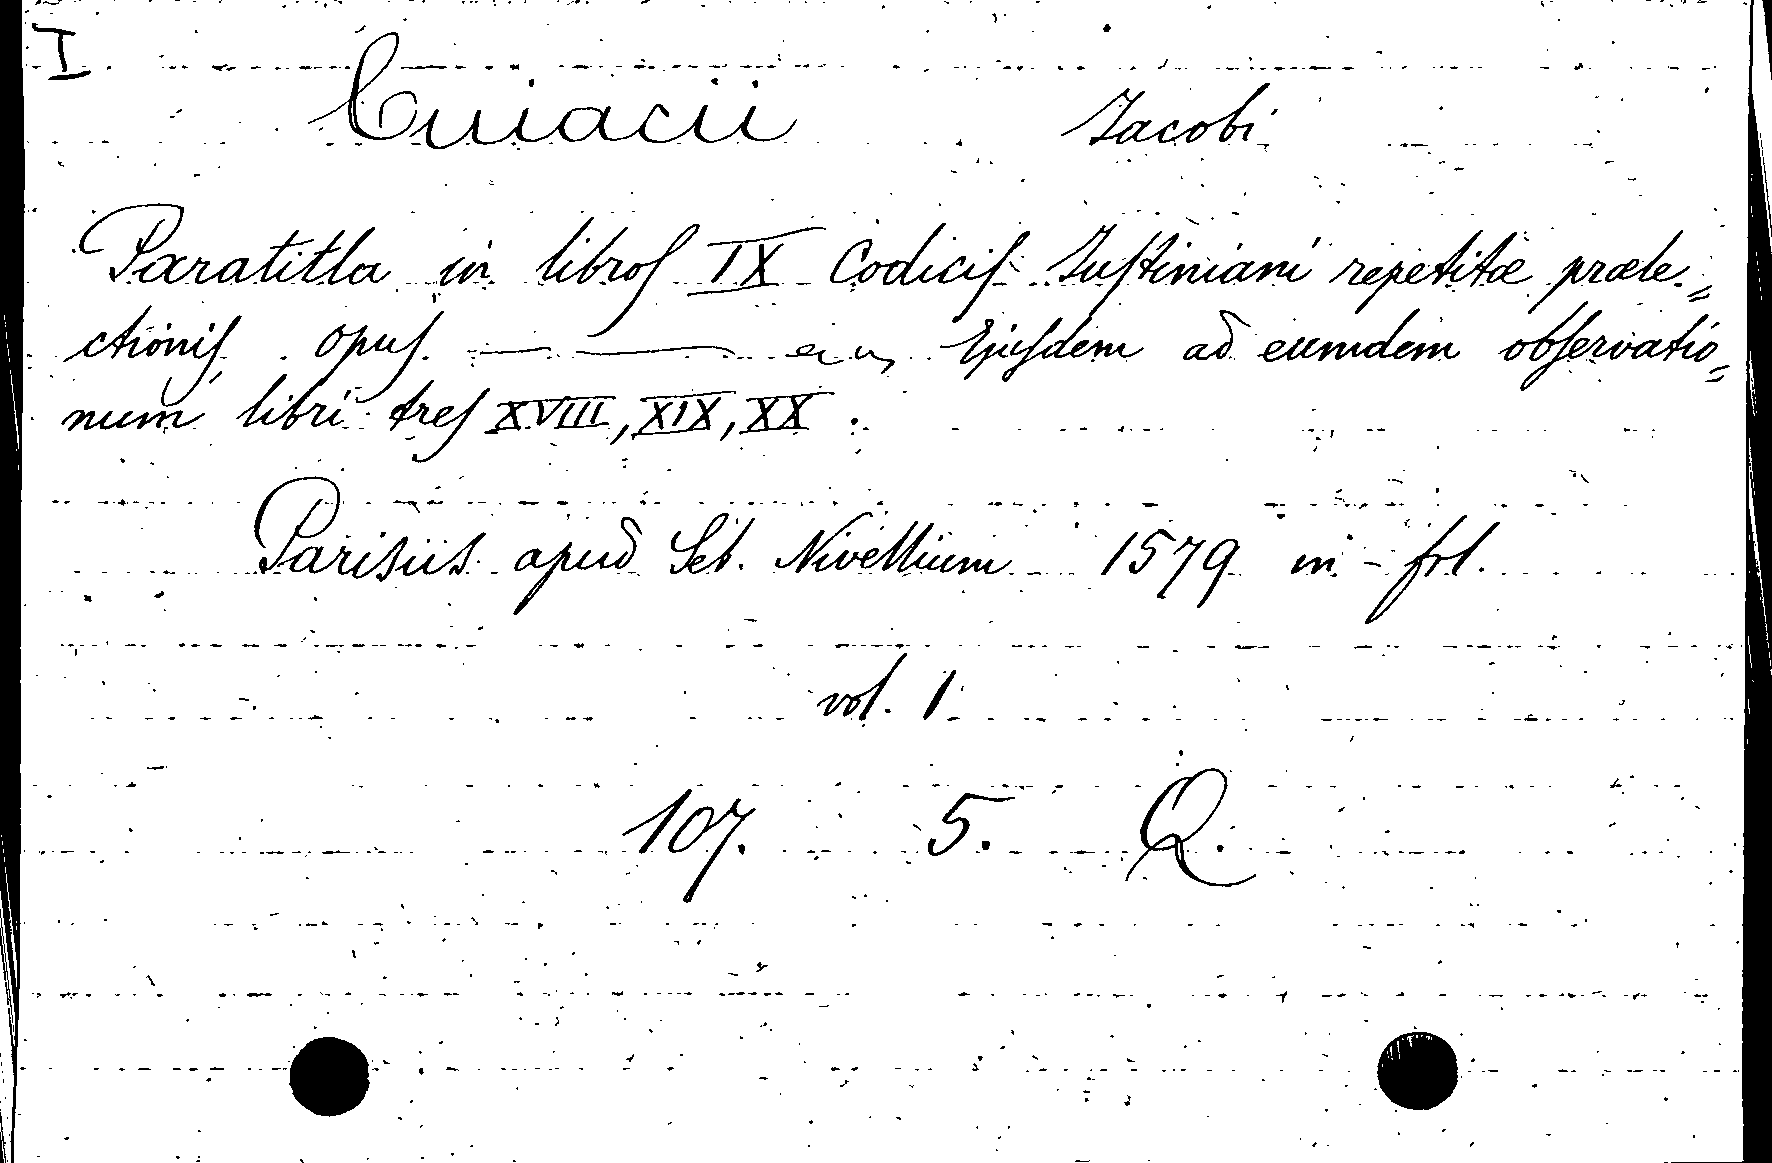 I
Cuiacii Jacobi
Paratitla in libros IX Codicis Justiniani repetitæ præle=
ctionis opus. Ejusdem ad eumdem observatio=
num libri tres XVIII, XIX, XX.
Parisiis apud Seb. Nivellium 1579 in-fol.
vol. 1
107. 5. Q.